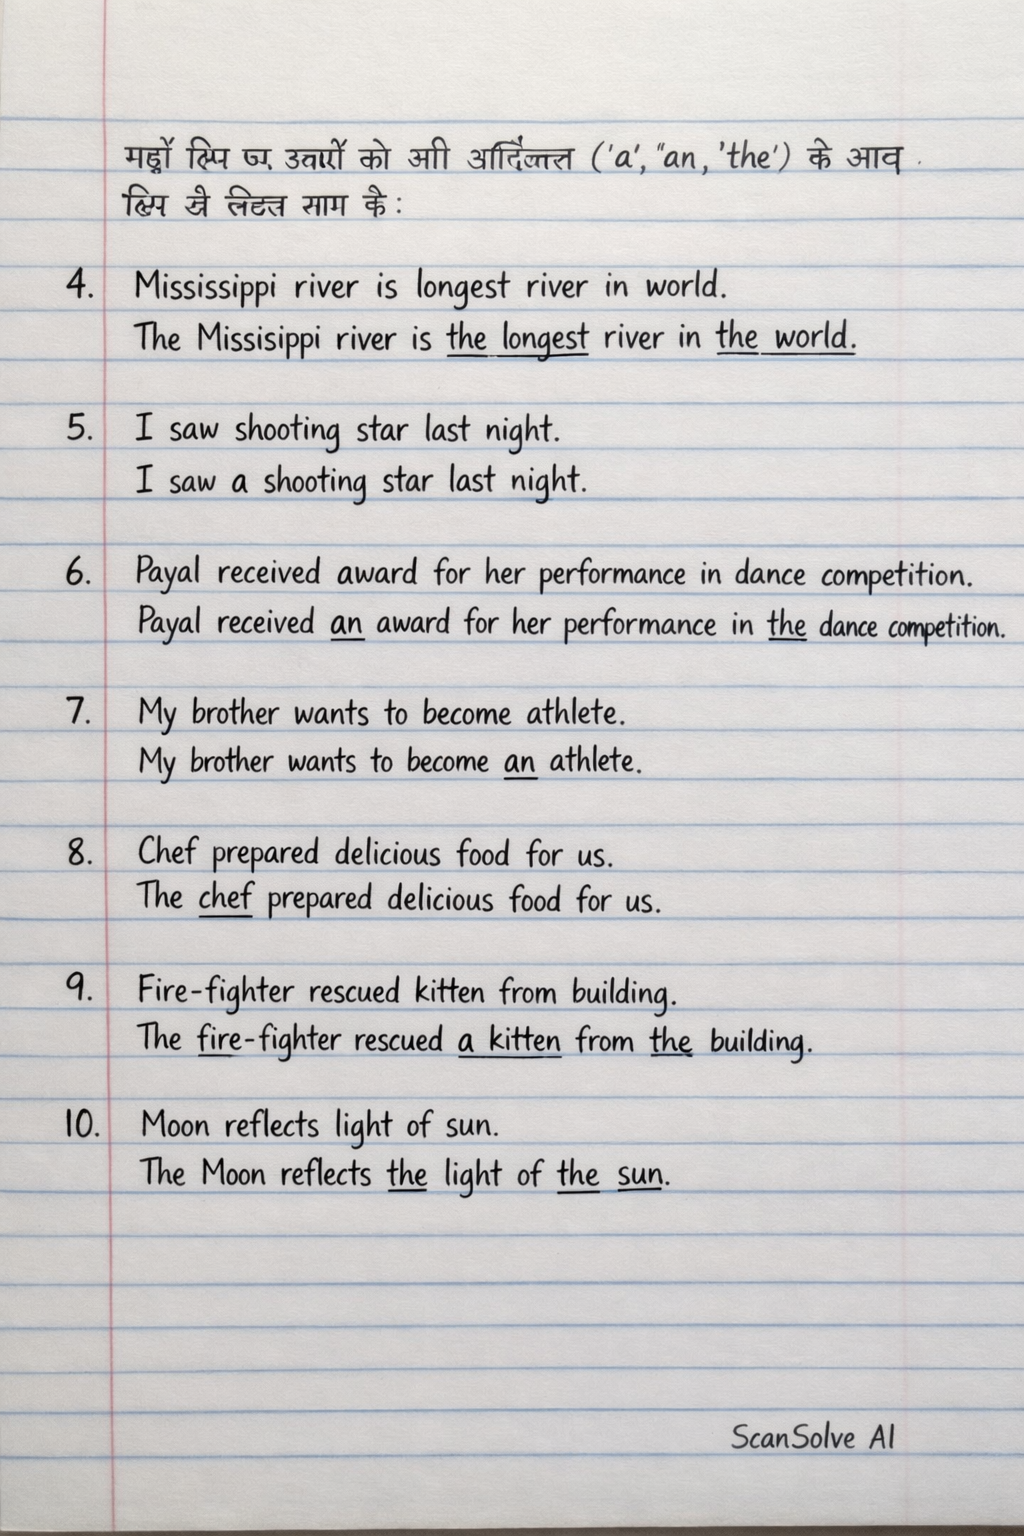 को ('a', "an, 'the') के आव
4. Mississippi river is longest river in world.
The Missisippi river is the longest river in the world.
5. I saw shooting star last night.
I saw a shooting star last night.
6. Payal received award for her performance in dance competition.
Payal received an award for her performance in the dance competition.
7. My brother wants to become athlete.
My brother wants to become an athlete.
8. Chef prepared delicious food for us.
The chef prepared delicious food for us.
9. Fire-fighter rescued kitten from building.
The fire-fighter rescued a kitten from the building.
10. Moon reflects light of sun.
The Moon reflects the light of the sun.
ScanSolve AI